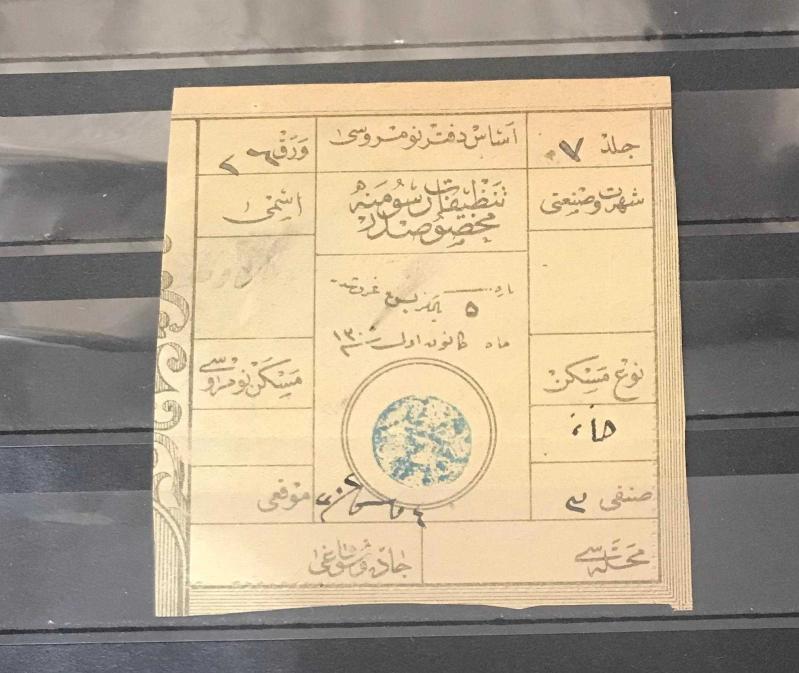 اساس دفتر نومروسی
جلد ٧
ورق ٢٦
تنظیفات رسومنه
مخصوصدر
شهرت و صنعتی
اسمی
٥
ماه کانون اول سنه
نوع مسکن
مسکن نومروسی
خانه
صنفی ٣
موقعی
محله سی
جاده و سوقاغی